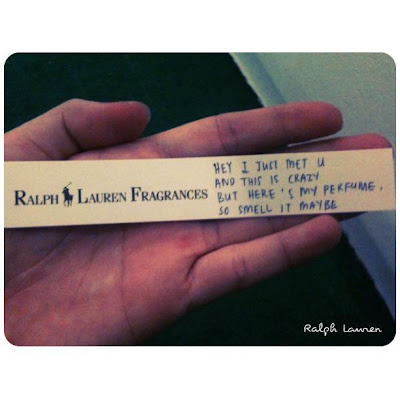 RALPH LAUREN FRAGRANCES
HEY I JUST MET U
AND THIS IS CRAZY
BUT HERE'S MY PERFUME,
SO SMELL IT MAYBE
Ralph Lauren